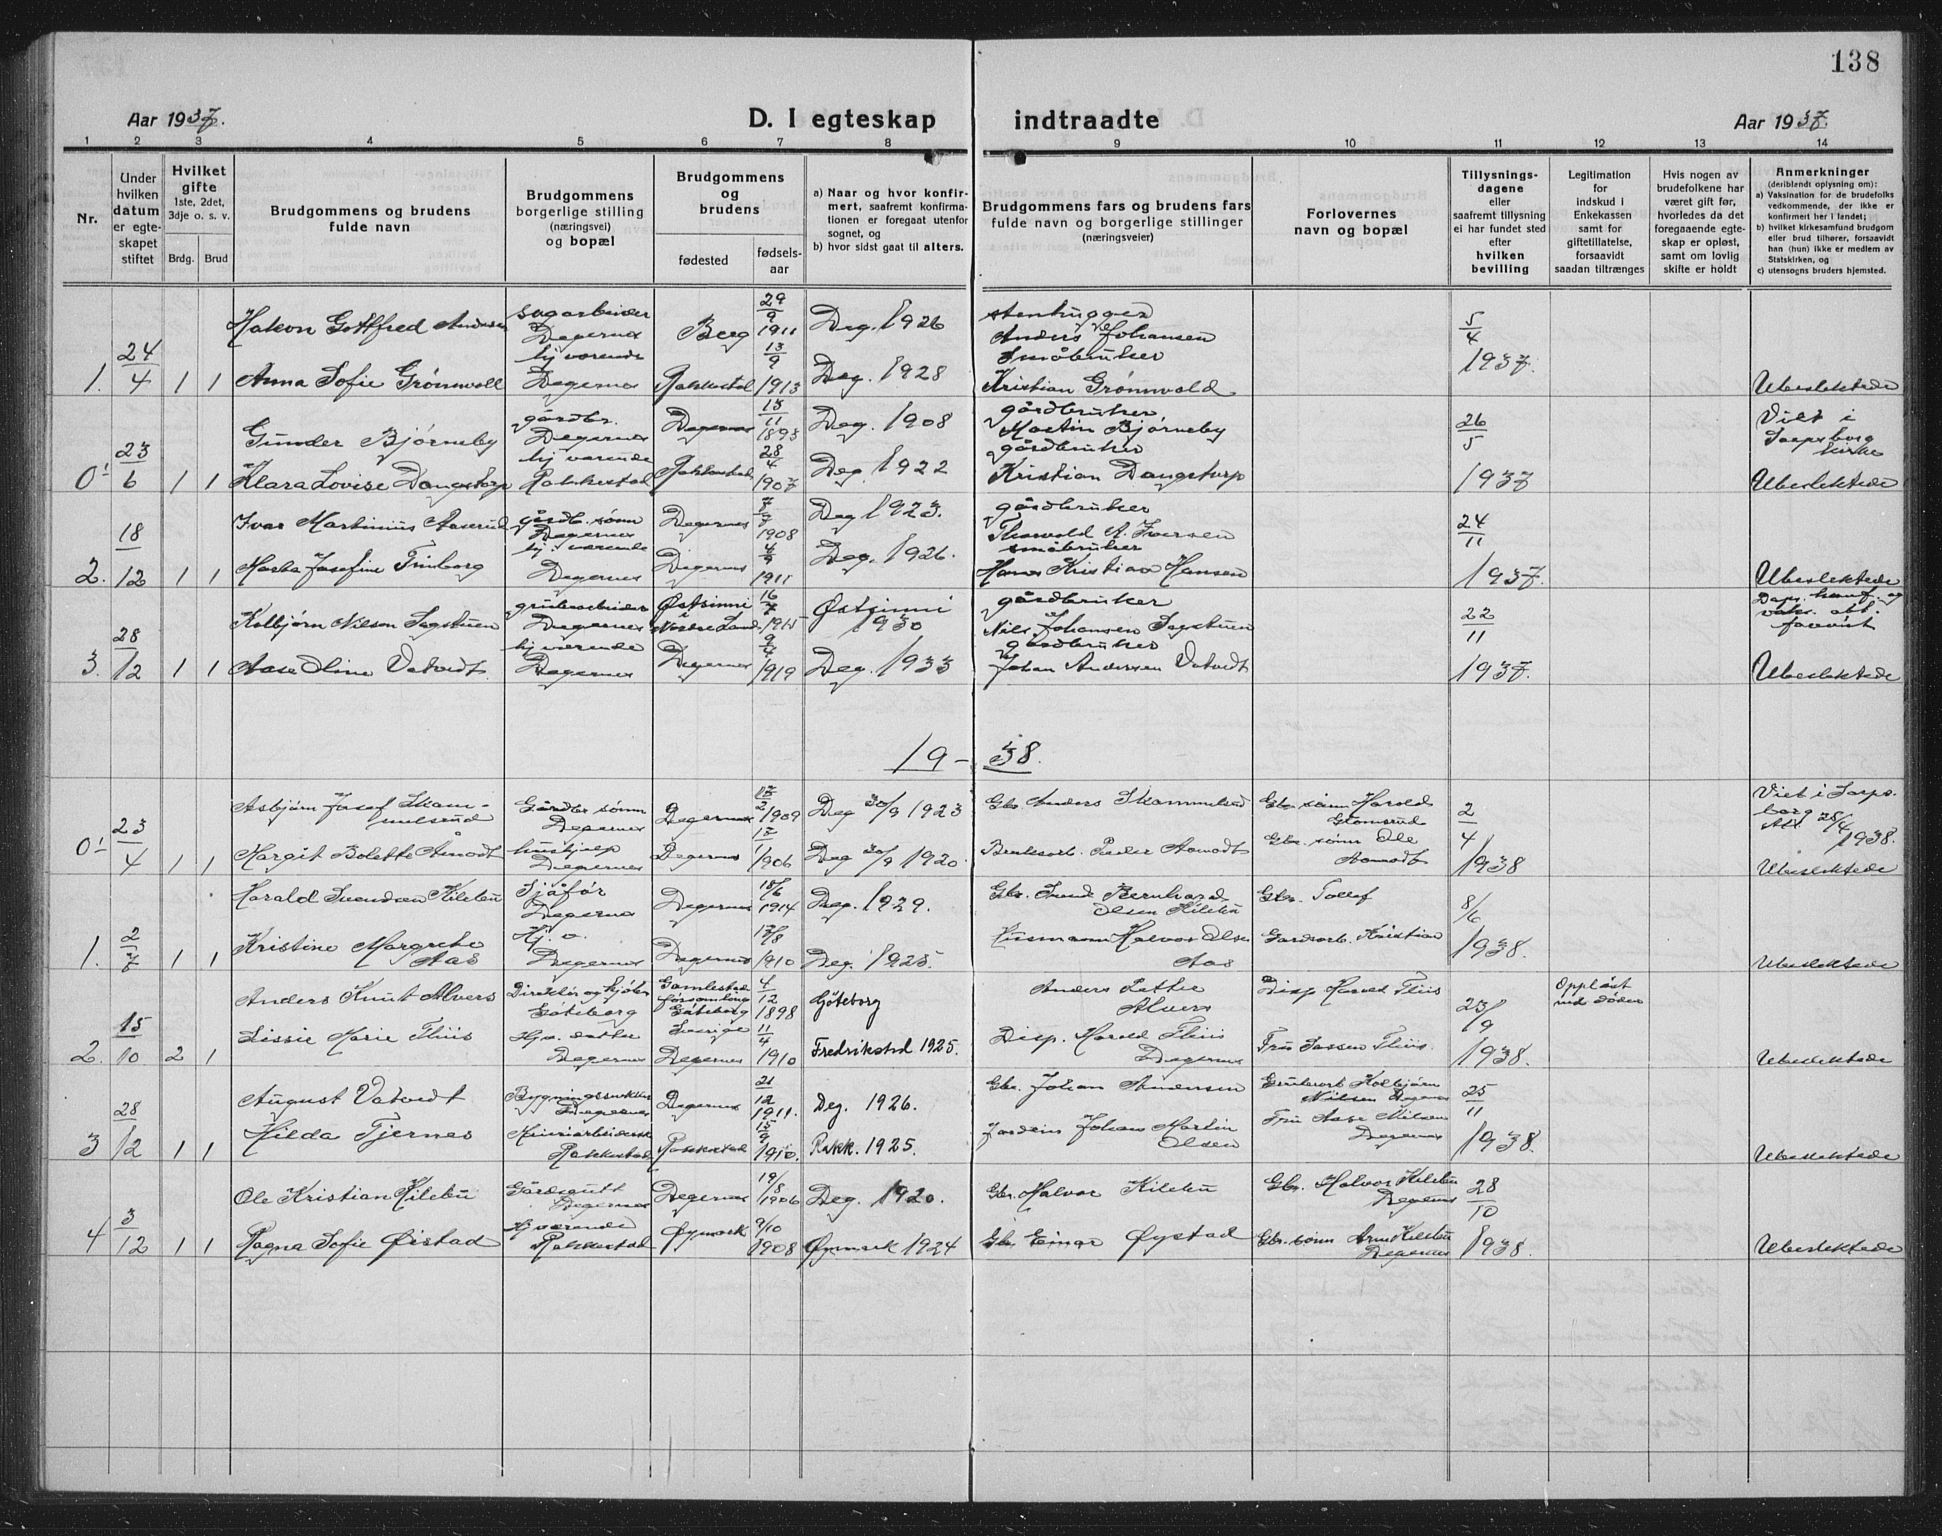 138
Aar 1937.
D. I egteskap indtraadte
Aar 1937
1 2 3 4 5 6 7 8 9 10 11 12 13 14
Nr.
Under hvilken datum er egteskapet stiftet
Hvilket gifte 1ste, 2det, 3dje o. s. v.
Brdg. Brud
Brudgommens og brudens fulde navn
Brudgommens borgerlige stilling (næringsvei) og bopæl
Brudgommens og brudens
fødested
fødsels-aar
a) Naar og hvor konfirmert, saafremt konfirmationen er foregaat utenfor sognet, og
b) hvor sidst gaat til alters.
Brudgommens fars og brudens fars fulde navn og borgerlige stillinger (næringsveier)
Forlovernes navn og bopæl
Tillysningsdagene eller saafremt tillysning ei har fundet sted efter hvilken bevilling
Legitimation for indskud i Enkekassen samt for giftetillatelse, forsaavidt saadan tiltrænges
Hvis nogen av brudefolkene har været gift før, hvorledes da det foregaaende egteskap er opløst, samt om lovlig skifte er holdt
Anmerkninger (deriblandt oplysning om):
a) Vaksination for de brudefolks vedkommende, der ikke er konfirmert her i landet;
b) hvilket kirkesamfund brudgom eller brud tilhører, forsaavidt han (hun) ikke er medlem av Statskirken, og
c) utensogns bruders hjemsted.
Hakon Gottfred Andersen sagarbeider Degernes Berg 29/9 1911 Deg. 1926 stenhugger Anders Johansen 5/4 1937.
1. 24/4 1 1 Anna Sofie Grønvoll hj. værende Degernes Rakkestad 13/9 1913 Deg. 1928 Småbruker Kristian Grønvold Ubeslektede
Gunder Bjørneby gårdbr. Degernes Degernes 13/11 1893 Deg. 1908 gårdbruker Martin Bjørneby 26/5 1937 Viet i Sarpsborg kirke
01 23/6 1 1 Klara Lovise Dangstorp hj værende Rakkestad Rakkestad 28/4 1907 Deg. 1922 gårdbruker Kristian Dangstorp Ubeslektede
Ivar Martinius Aaserud gårdb. sønn Degernes Degernes 1908 Deg 1923. gårdbruker Thorvald A. Iversen 24/11 1937.
2. 18/12 1 1 Marta Josefine Finborg hj. værende Degernes Degernes 4/9 1911 Deg. 1926. småbruker Hans Kristian Hansen Ubeslektede
Kolbjørn Nilsen Sagstuen grubearbeider Degernes Østsinni Nordre Land 16/7 1915 Østsinni 1930 gårdbruker Nils Johansen Sagstuen 22/11 1937. Daps. konf. og vaks. att. forevist
3. 28/12 1 1 Aase Oline Vatvedt hj værende Degernes Degernes 9/4 1919 Deg. 1933 gårdbruker Johan Andersen Vatvedt Ubeslektede
19 - 38.
Asbjørn Josef Skammelsrud Gårdbr sønn Degernes Degernes 17/2 1909 Deg 30/9 1923 Gbr. Anders Skammelsrud Gbr sønn Harold Glomsrud 2/4 1938 Viet i Sarpsborg Att 28/4 1938.
01 23/4 1 1 Margit Bolette Åmodt hushjelp Degernes Degernes 1906 Deg 30/9 1920. Bruksarb. Peder Aamodt Gbr. sønn Ole Aamodt Ubeslektede
Harald Svendsen Kilebu Sjåfør Degernes Degernes 15/6 1914 Deg. 1929. Gbr. Svend Bernhard Olsen Kilebu Gbr. Tollef 8/6 1938.
1. 2/7 1 1 Kristine Margrethe Aas Hj. v. Degernes Degernes 17/8 1910 Deg. 1925. Husmann Halvor Olsen Aas Gardsarb. Kristian Ubeslektede
Anders Knut Alvers Direktør Göteborg Gamlestad församling Göteborg Sverige 4/12 1898 Göteborg Anders Petter Alvers Disp Harold Thiis 23/9 1938. Oppløst ved døden
2. 15/10 2 1 Lissie Marie Thiis Hj. v. datter Degernes Degernes 11/4 1910 Fredrikstad 1925. Disp. Harold Thiis Degernes Fru Thiis. Ubeslektede
August Vatvedt Bygningssnekker Degernes Degernes 21/12 1911. Deg. 1926. Gbr. Johan Andersen Grubearb Kolbjørn Nilsen Degernes 25/11 1938.
3 28/12 1 1 Hilda Tjernes Meieriarbeiderske Rakkestad Rakkestad 15/9 1910. Rakk. 1925. Jordeier Johan Martin Olsen Fru Aase Nilsen Degernes Ubeslektede
Ole Kristian Kilebu Gårdsgutt Degernes Degernes 19/8 1906 Deg. 1920. Gbr. Halvor Kilebu Gbr. Halvor Kilebu Degernes 28/10 1938.
4 3/12 1 1 Ragna Sofie Øistad Hj værende Rakkestad Øymark 9/10 1908 Øymark 1924 Gbr. Einar Øystad Gbr. sønn Arne Kilebu Degernes Ubeslektede